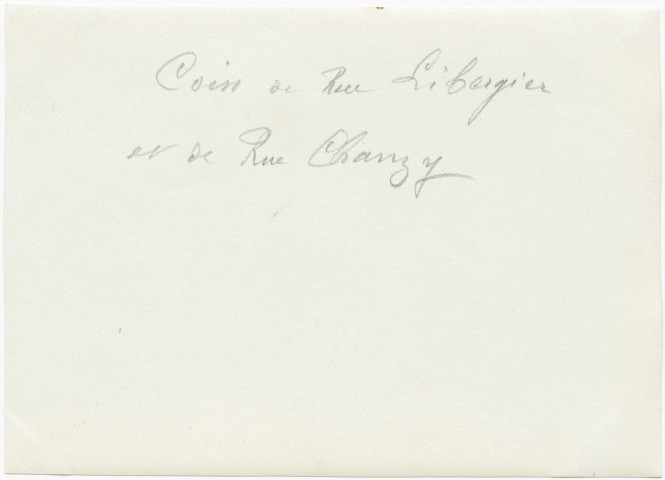 Coin de Rue Libergier
et de Rue Chanzy